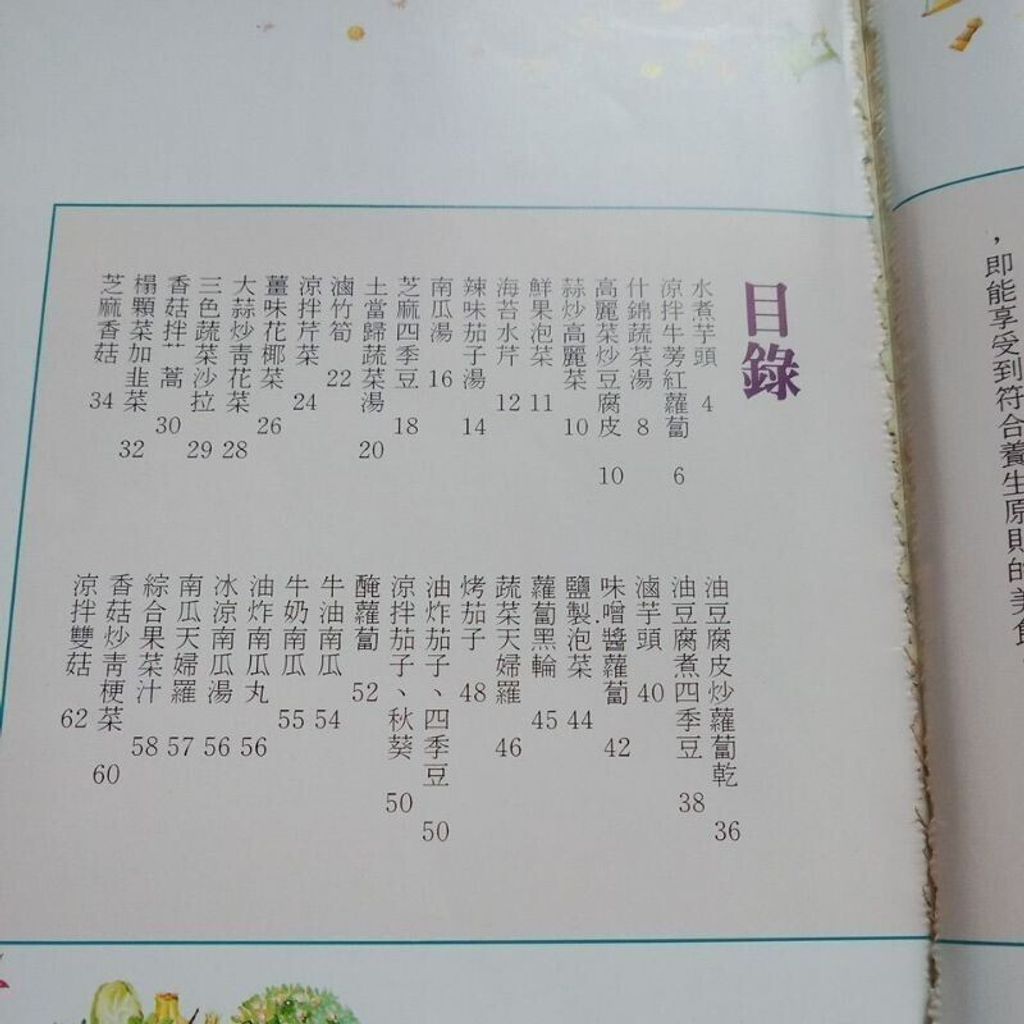 ，即能享受到符合養生原則的美食
目錄
水煮芋頭 4
涼拌牛蒡紅蘿蔔 6
什錦蔬菜湯 8
高麗菜炒豆腐皮 10
蒜炒高麗菜 10
鮮果泡菜 11
海苔水芹 12
辣味茄子湯 14
南瓜湯 16
芝麻四季豆 18
土當歸蔬菜湯 20
滷竹筍 22
涼拌芹菜 24
薑味花椰菜 26
大蒜炒青花菜 28
三色蔬菜沙拉 29
香菇拌艹蒿 30
榻顆菜加韭菜 32
芝麻香菇 34
油豆腐皮炒蘿蔔乾 36
油豆腐煮四季豆 38
滷芋頭 40
味噌醬蘿蔔 42
鹽製泡菜 44
蘿蔔黑輪 45
蔬菜天婦羅 46
烤茄子 48
油炸茄子、四季豆 50
涼拌茄子、秋葵 50
醃蘿蔔 52
牛油南瓜 54
牛奶南瓜 55
油炸南瓜丸 56
冰涼南瓜湯 56
南瓜天婦羅 57
綜合果菜汁 58
香菇炒青梗菜 60
涼拌雙菇 62